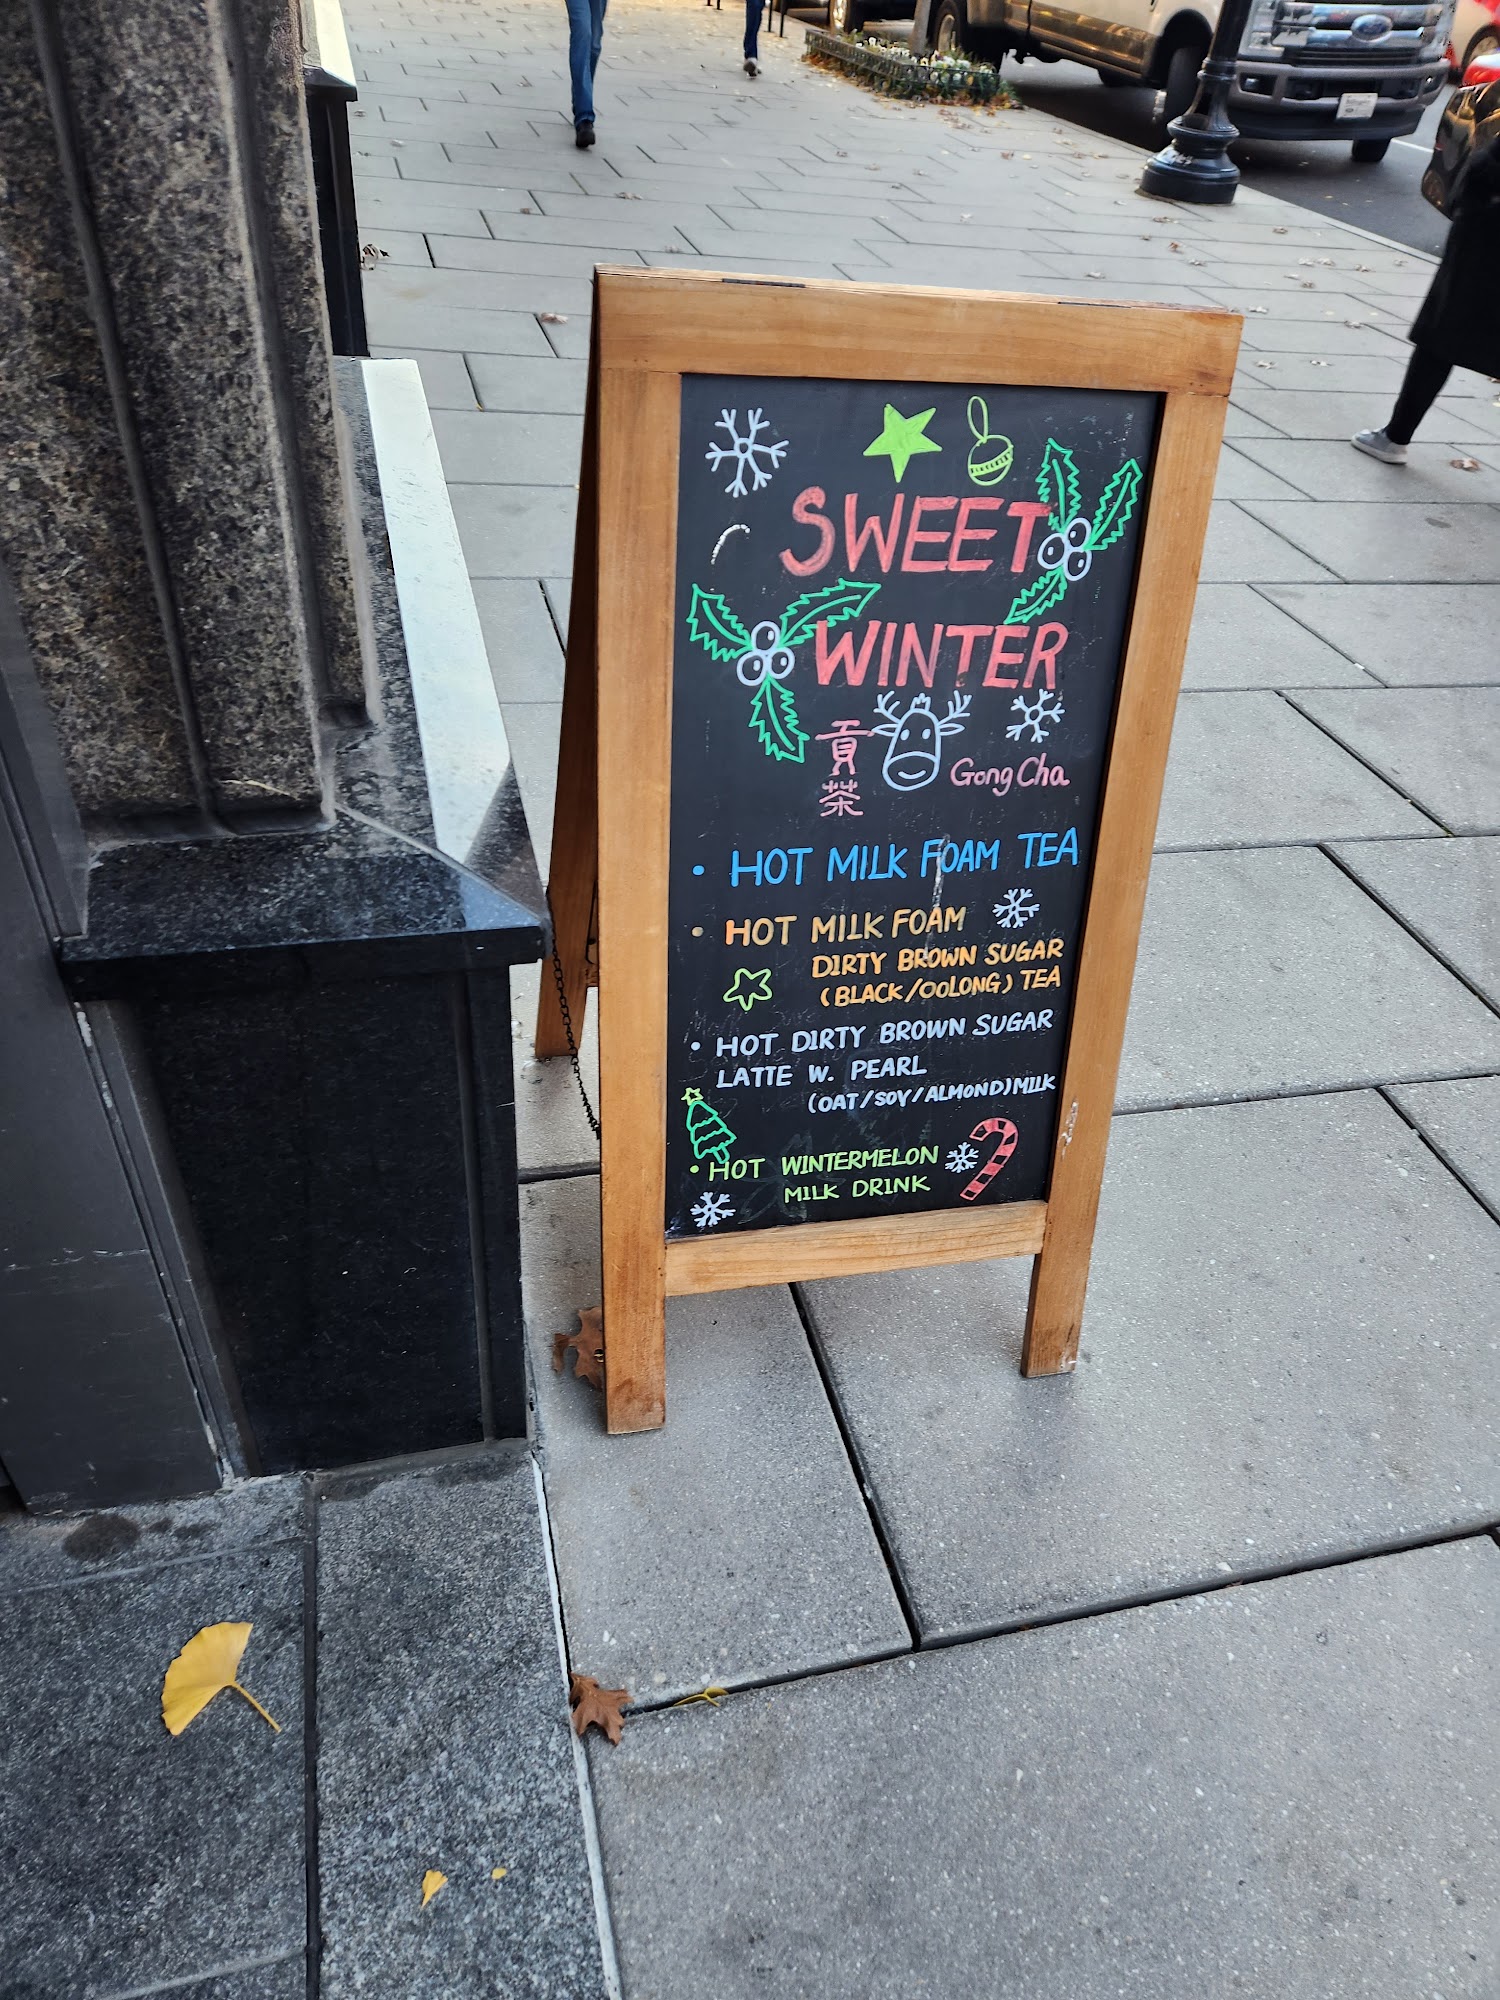 SWEET
WINTER
貢
茶
Gong Cha
• HOT MILK FOAM TEA
• HOT MILK FOAM
DIRTY BROWN SUGAR
(BLACK/OOLONG) TEA
• HOT DIRTY BROWN SUGAR
LATTE W. PEARL
(OAT/SOY/ALMOND) MILK
• HOT WINTERMELON
MILK DRINK
Ford